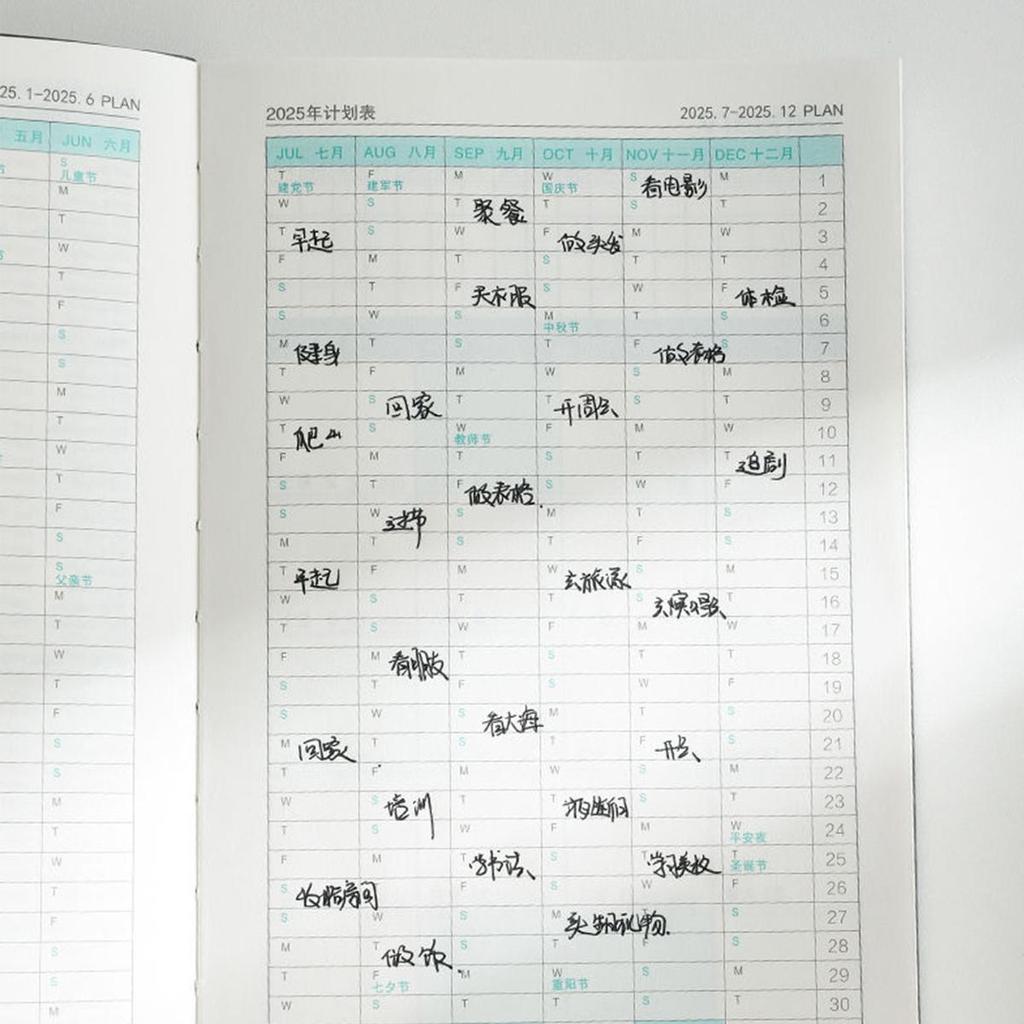 25.1-2025.6 PLAN
五月 JUN 六月
S 儿童节
M
T
W
T
F
S
S
M
T
W
T
F
S
S 父亲节
M
T
W
T
F
S
S
M
T
W
T
F
S
S
M
2025年计划表 2025.7-2025.12 PLAN
JUL 七月 AUG 八月 SEP 九月 OCT 十月 NOV 十一月 DEC 十二月
T 建党节 F 建军节 M W 国庆节 S 看电影 M 1
W S T 聚餐 T S T 2
T 早起 S W F 做头发 M W 3
F M T S T T 4
S T F 买衣服 S W F 体检 5
S W S M 中秋节 T S 6
M 健身 T S T F 做表格 S 7
T F M W S M 8
W S 回家 T T 开周会 S T 9
T 爬山 S W 教师节 F M W 10
F M T S T T 追剧 11
S T F 做表格. S W F 12
S W 过节 S M T S 13
M T S T F S 14
T 早起 F M W 去旅游 S M 15
W S T T S T 16
T S W F M W 17
F M T S T T 18
S T F S W F 19
S W S 看大海 M T S 20
M 回家 T S T F 开会 S 21
T F M W S M 22
W S 培训 T T S T 23
T S W F M W 平安夜 24
F M T 学书法 S T T 圣诞节 25
S T F S W F 26
S W S M 买生日礼物 T S 27
M T 做饭 S T F S 28
T F 七夕节 M W 重阳节 S M 29
W S T T S T 30